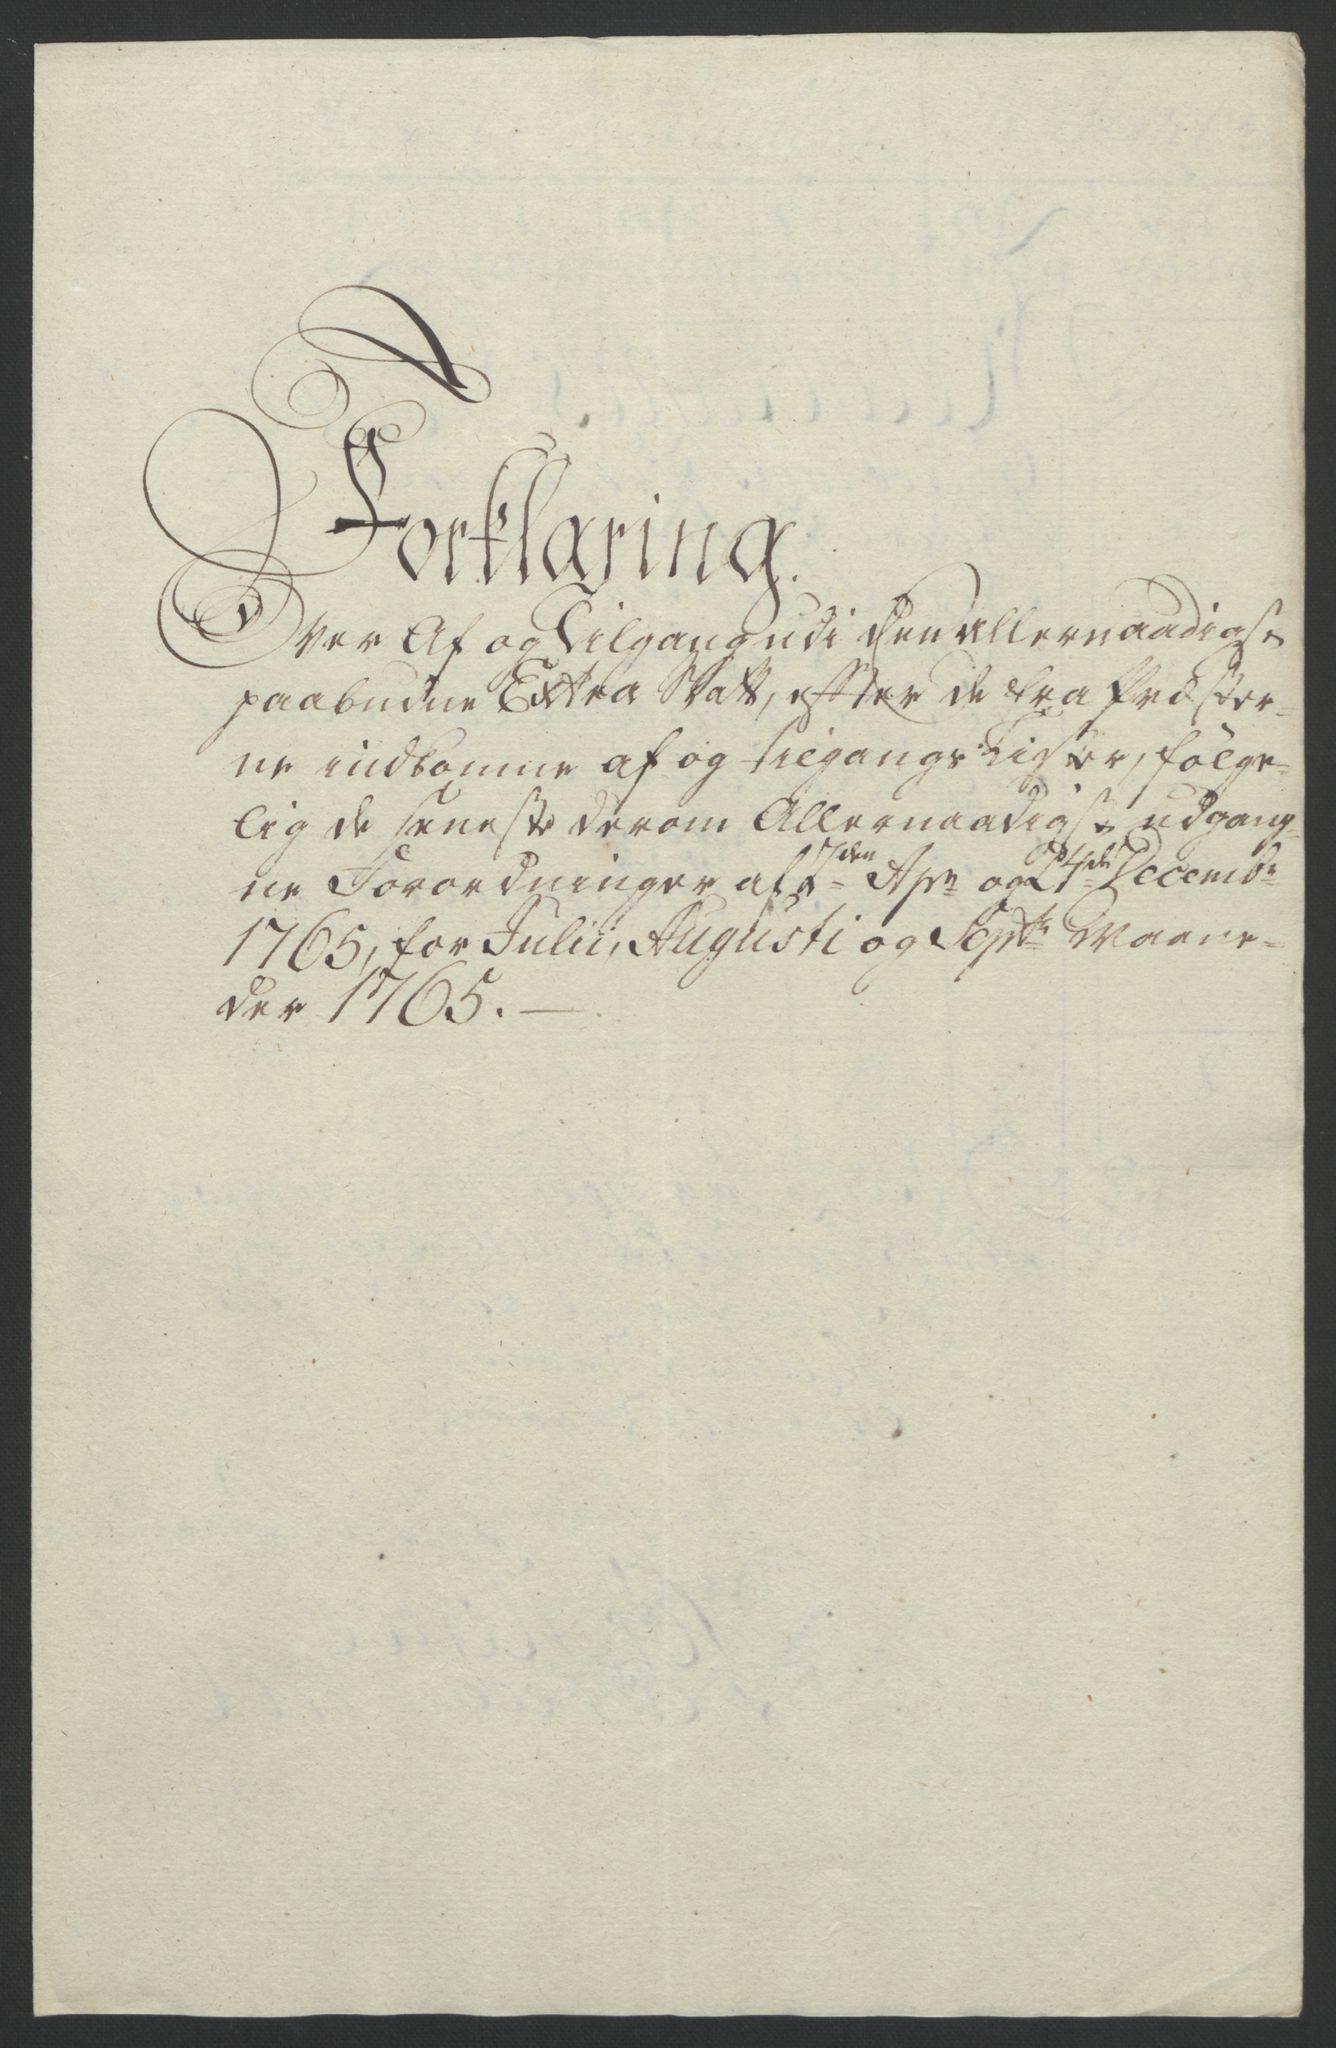 Forklaring.
Over Af og Tilgang udi den Allernaadigste
paabudne Extra Skatt, efter de fra Præster-
ne indkomne af og tilgangs Lister, følge-
lig de seneste derom Allernaadigste udgang-
ne Forordninger af 7den Apr og 24de Decembr
1765, for Julii, Augusti og Septbr Maane-
der 1765.